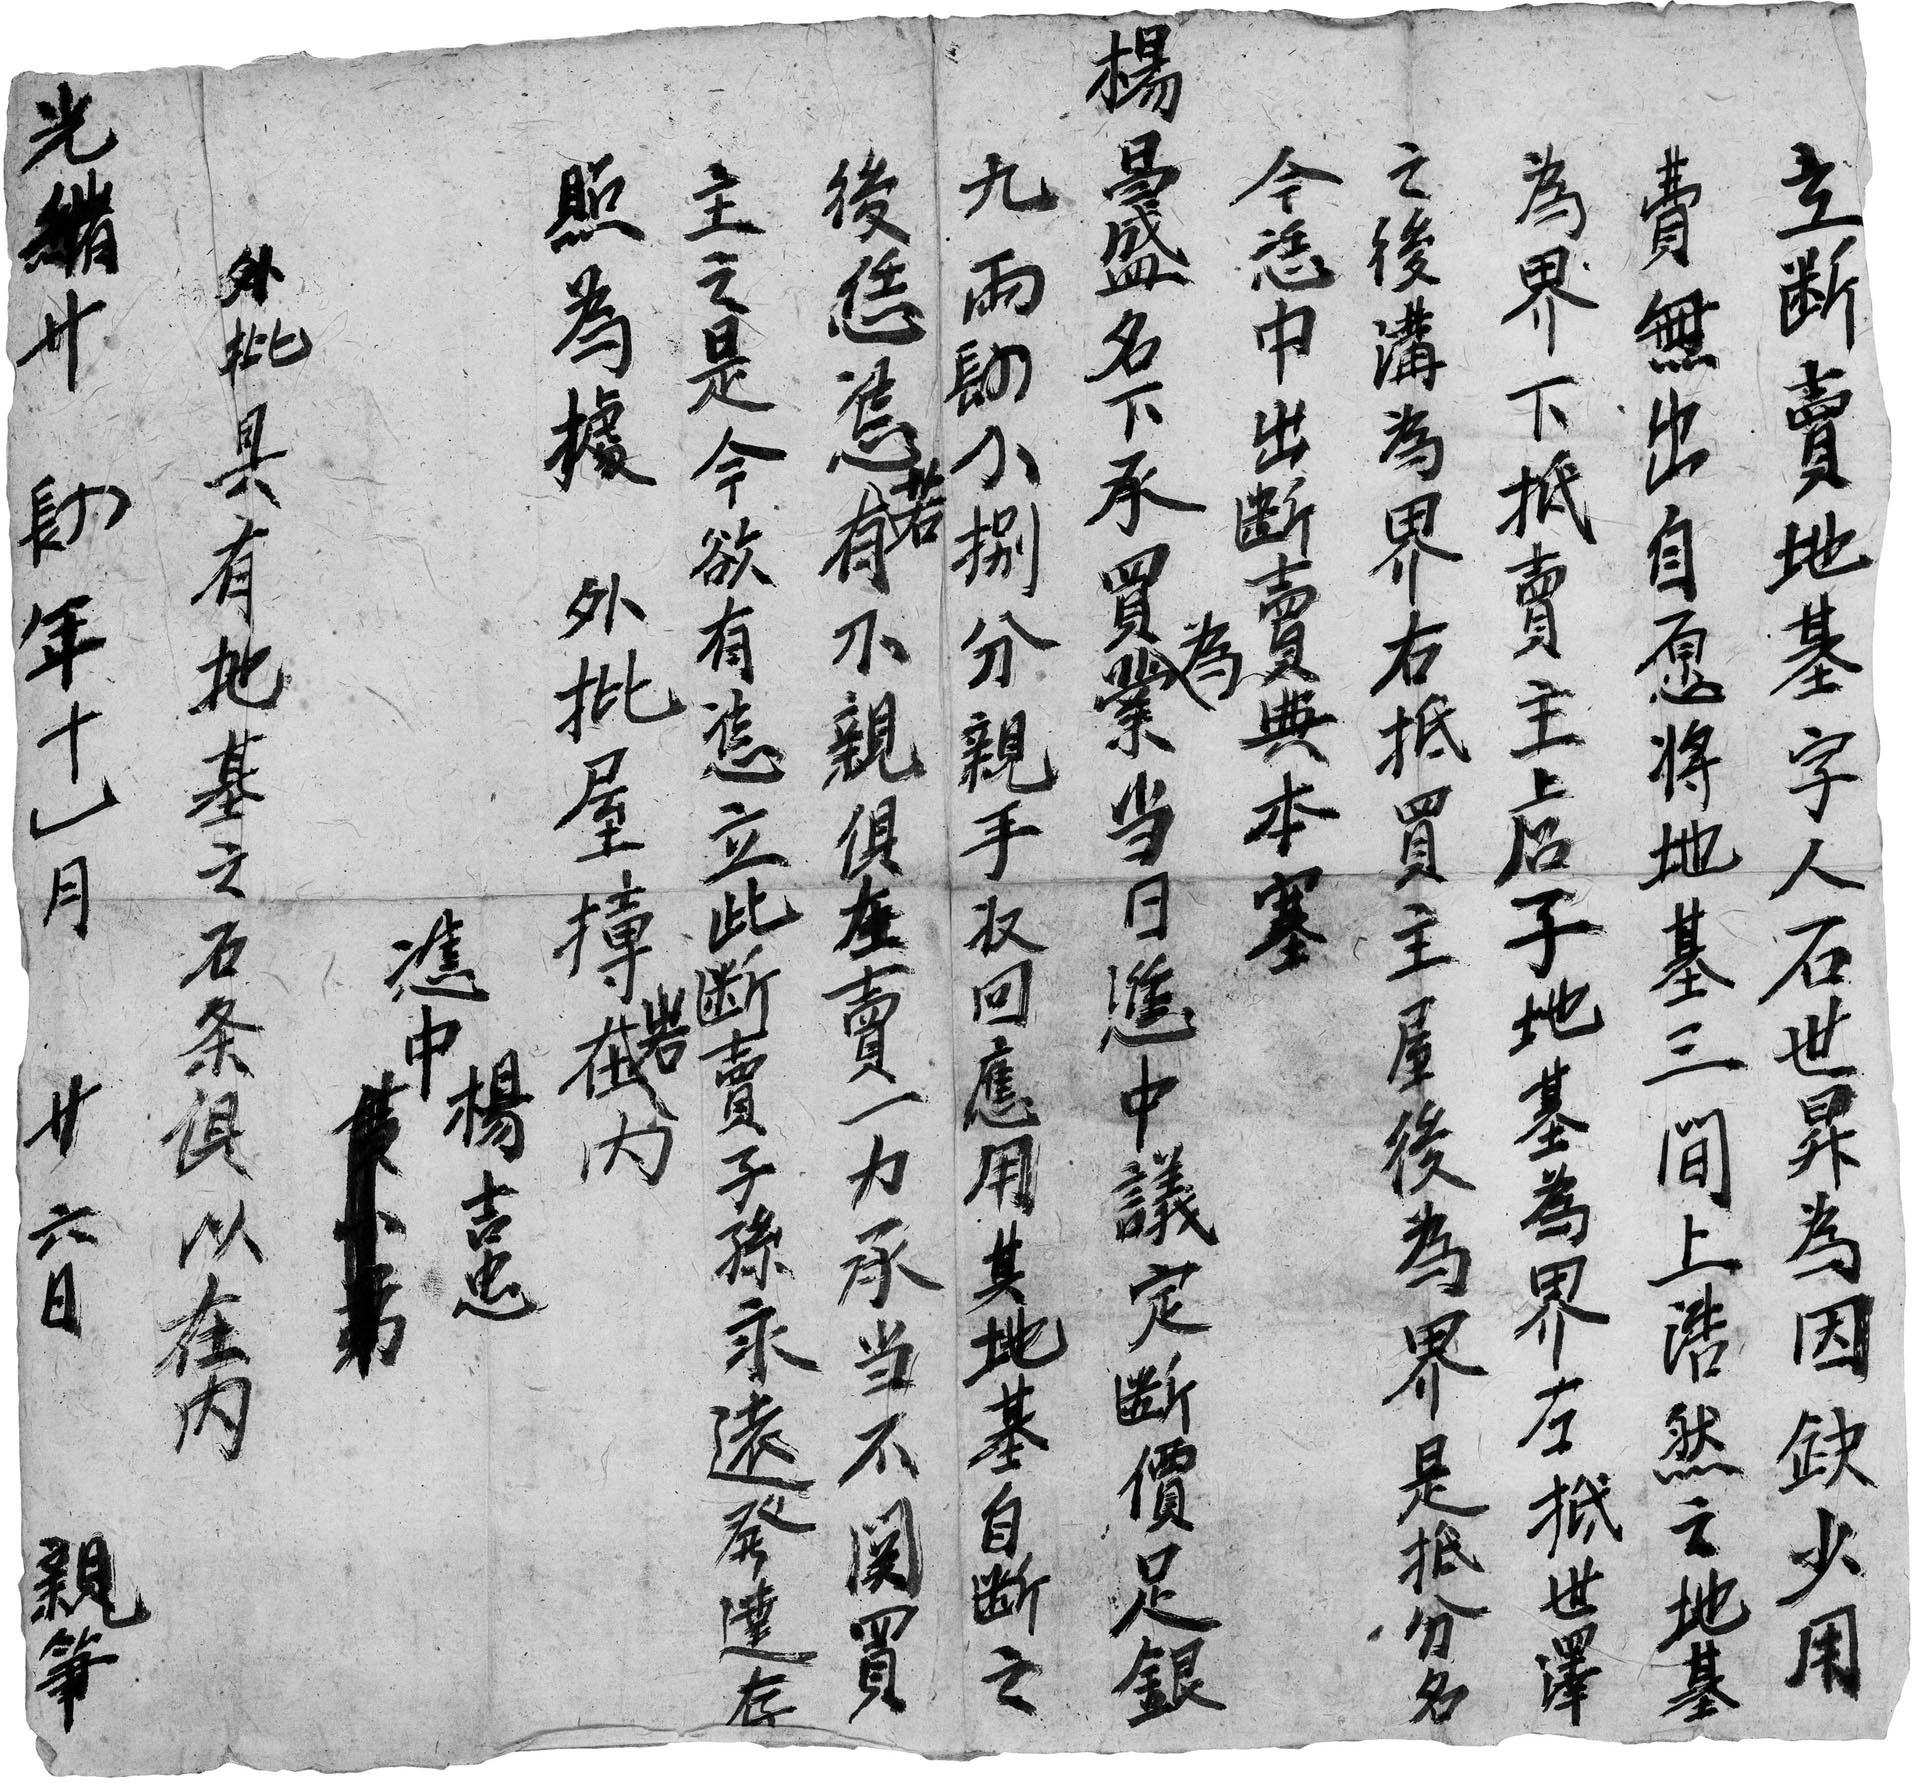 立断賣地基字人石世昇為因缺少用
費無出自愿將地基三間上浩然之地基
為界下抵賣主上后子地基為界左抵世澤
之後溝為界右抵買主屋後為界是抵分名
今憑中出断賣典本寨
楊昌盛名下承買為業当日憑中議定断價足銀
九両肆小捌分親手収回應用其地基自断之
後恁憑若有不親俱在賣一力承当不関買
主之是今欲有憑立此断賣子孫永遠發達存
照為據　外批屋摶岩在内
憑中 楊吉忠
外批具有地基之石条俱以在内
光緒廿肆年十乚月　廿六日　親筆